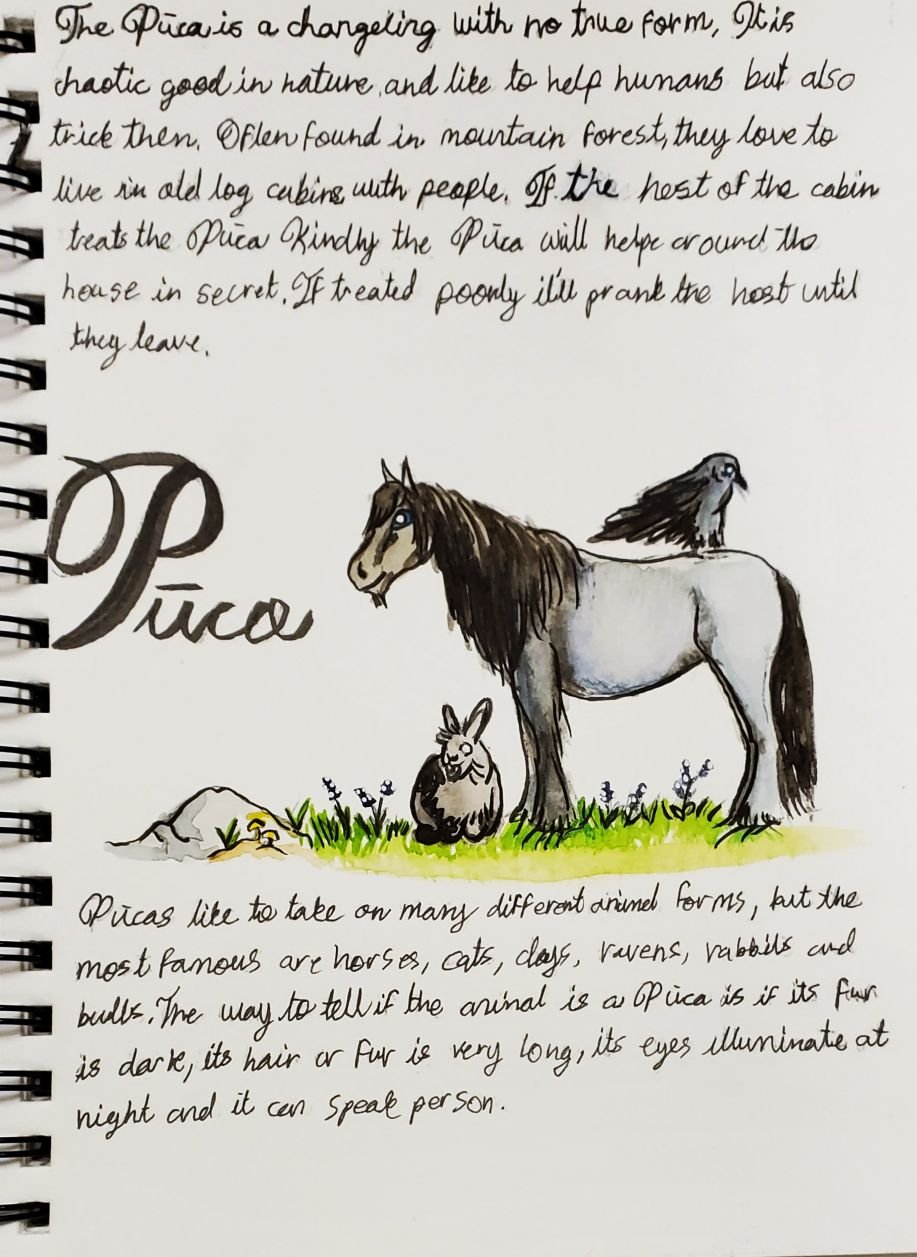 The Pūca is a changeling with no true form, It is
chaotic good in nature, and like to help humans but also
trick then. Often found in mountain forest, they love to
live in old log cabins with people. If the host of the cabin
treats the Pūca Kindly the Pūca will helpe around the
house in secret. If treated poorly it'll prank the host until
they leave.
Pūca
Pūcas like to take on many different animal forms, but the
most famous are horses, cats, dogs, ravens, rabbits and
bulls. The way to tell if the animal is a Pūca is if its fur
is dark, its hair or fur is very long, its eyes illuminate at
night and it can speak person.